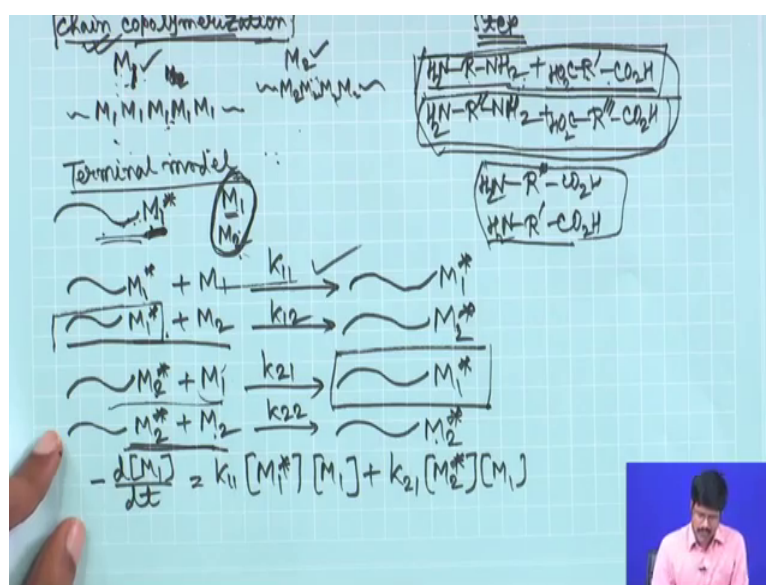 Chain copolymerization
M₁ M₂ M₂
~ M₁ M₁ M₁ M₁ M₁ ~ ~M₂M₂M₂M₂ ~
Step
H₂N-R-NH₂ + HO₂C-R'-CO₂H
H₂N-R''-NH₂ + HO₂C-R'''-CO₂H
H₂N-R''-CO₂H
H₂N-R'-CO₂H
Terminal model
~M₁* M₁
M₂
~M₁* + M₁ k₁₁→ ~M₁*
~M₁* + M₂ k₁₂→ ~M₂*
~M₂* + M₁ k₂₁→ ~M₁*
~M₂* + M₂ k₂₂→ ~M₂*
- d[M₁]/dt = k₁₁ [M₁*] [M₁] + k₂₁ [M₂*] [M₁]